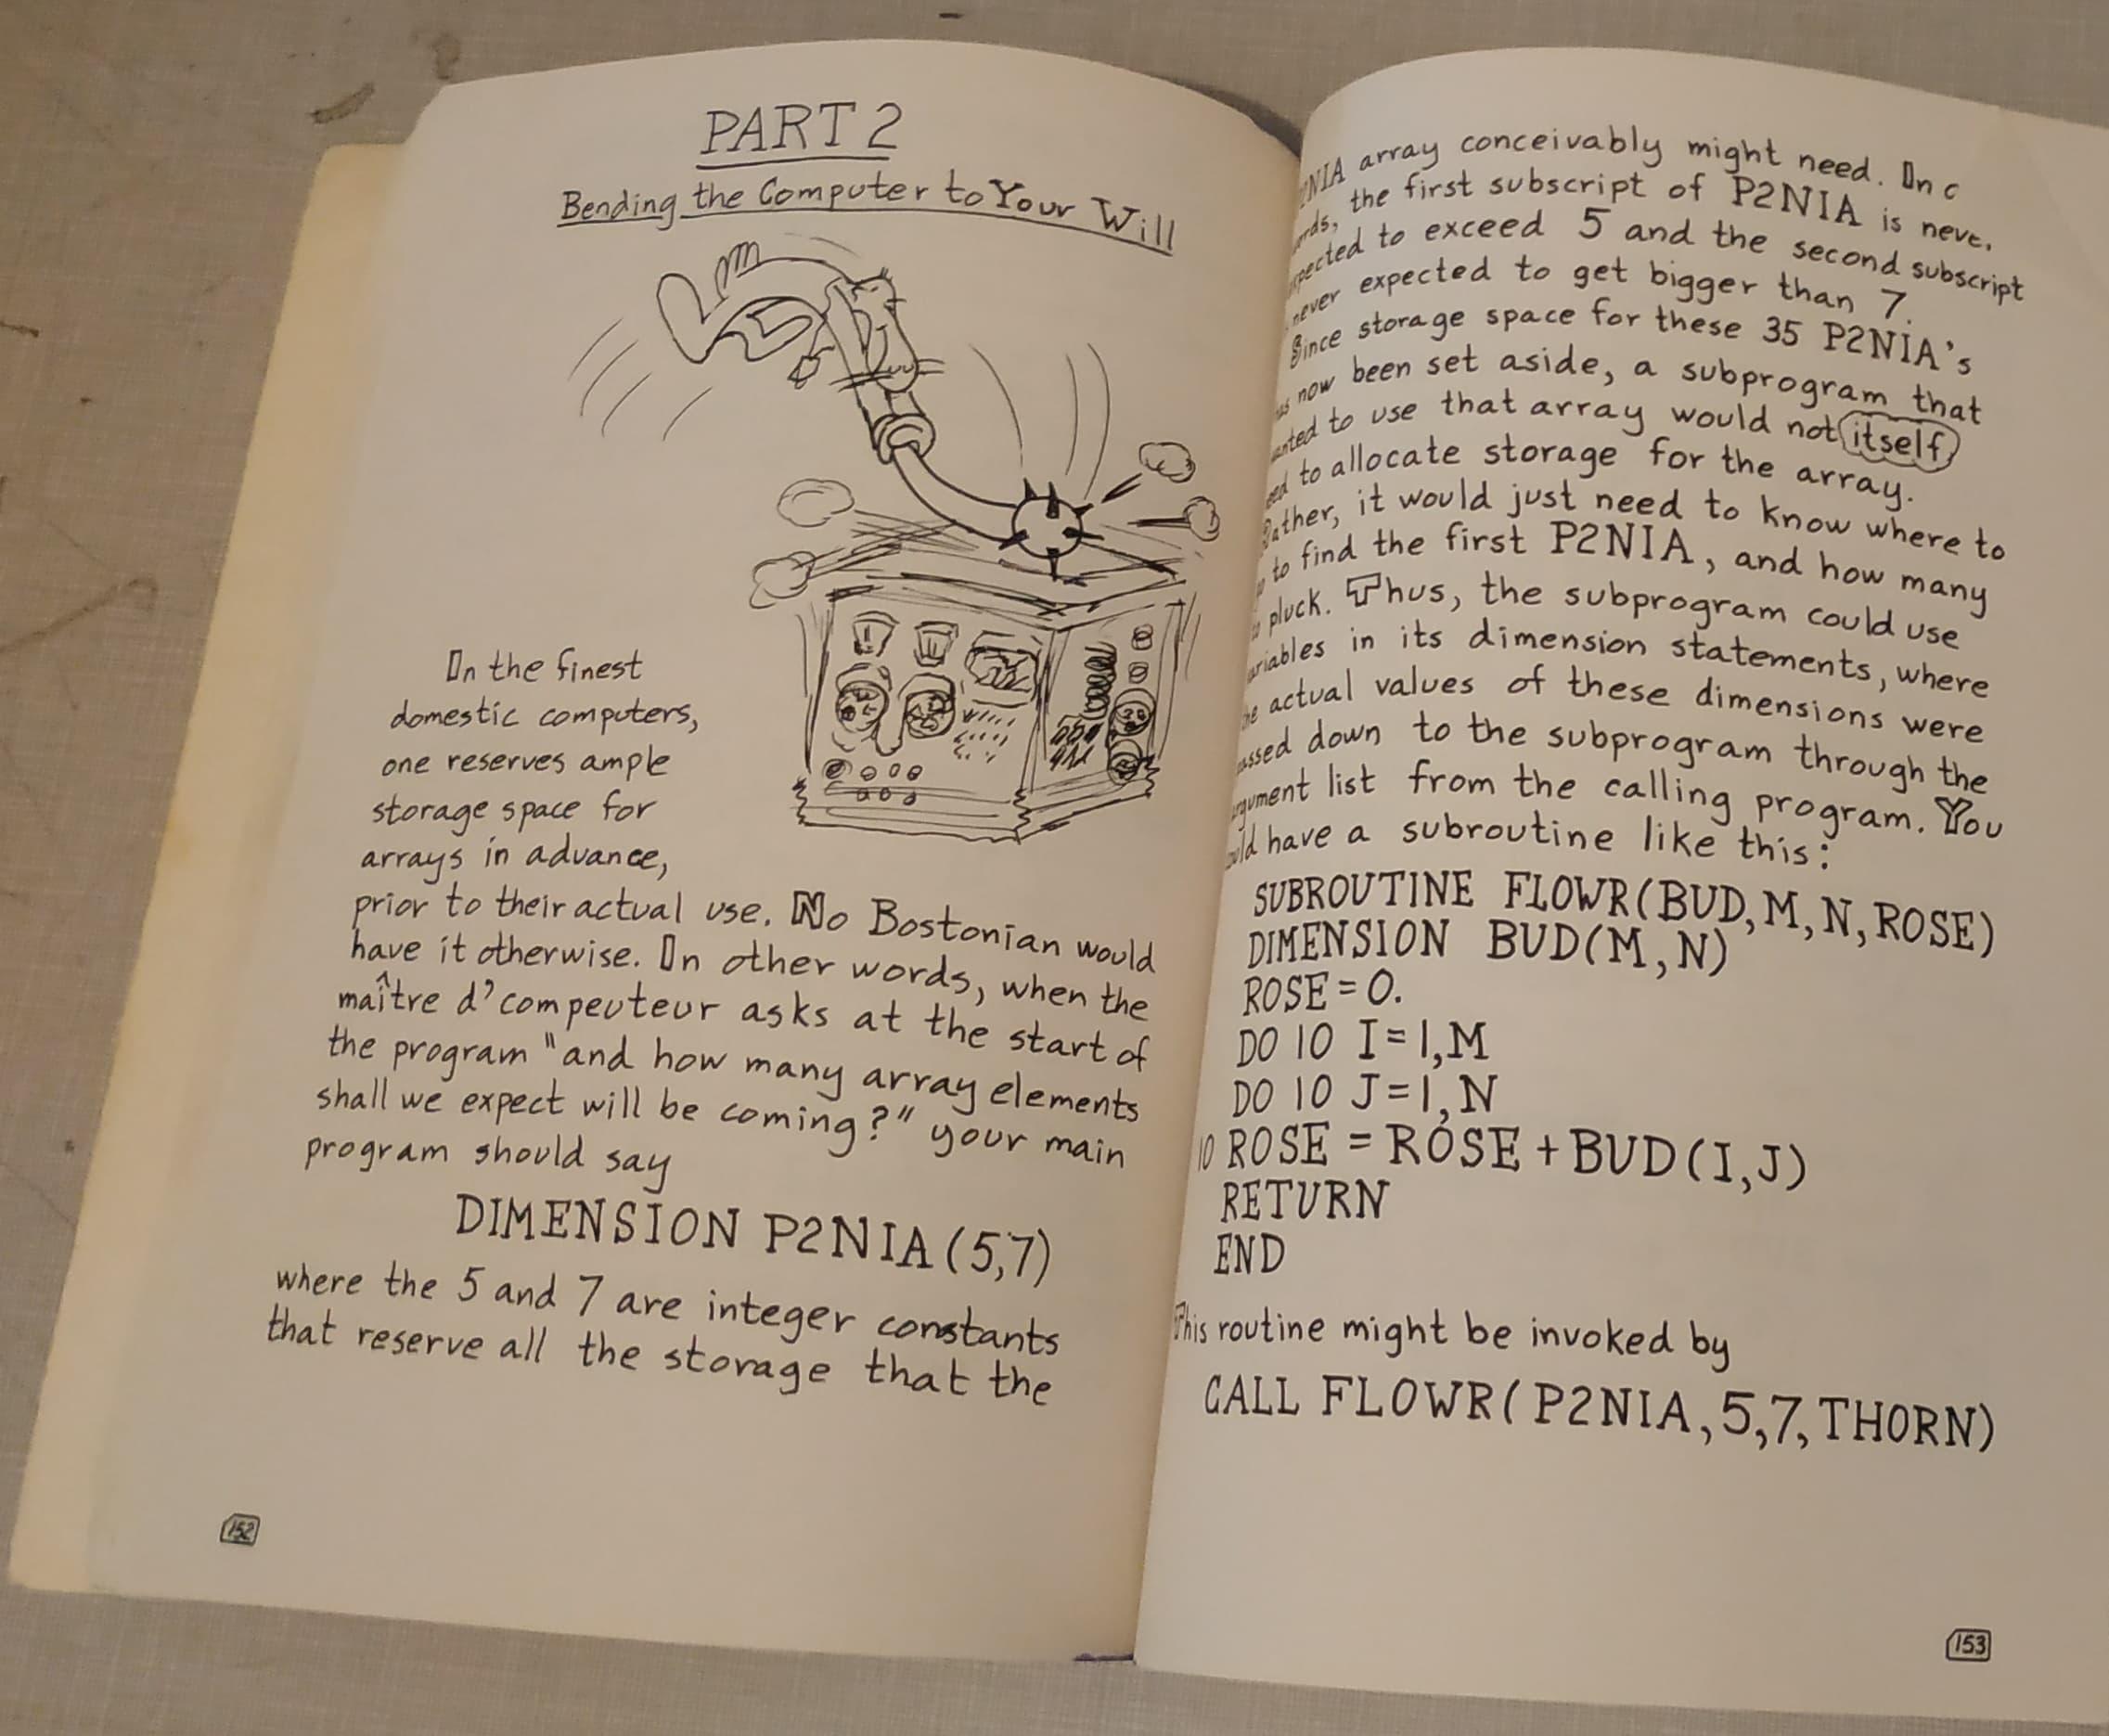 PART 2
Bending the Computer to Your Will
In the finest
domestic computers,
one reserves ample
storage space for
arrays in advance,
prior to their actual use. No Bostonian would
have it otherwise. In other words, when the
maître d'compeuteur asks at the start of
the program "and how many array elements
shall we expect will be coming?" your main
program should say
DIMENSION P2NIA(5,7)
where the 5 and 7 are integer constants
that reserve all the storage that the
152
P2NIA array conceivably might need. In
the first subscript of P2NIA is
to exceed 5 and the second subscript
never expected to get bigger than 7.
Since storage space for these 35 P2NIA's
now been set aside, a subprogram that
to use that array would not itself
to allocate storage for the array.
Rather, it would just need to know where to
to find the first P2NIA, and how many
pluck. Thus, the subprogram could use
variables in its dimension statements, where
actual values of these dimensions were
down to the subprogram through the
argument list from the calling program. You
have a subroutine like this:
SUBROUTINE FLOWR(BUD,M,N,ROSE)
DIMENSION BUD(M,N)
ROSE=0.
DO 10 I=1,M
DO 10 J=1,N
10 ROSE = ROSE + BUD(I,J)
RETURN
END
This routine might be invoked by
CALL FLOWR(P2NIA,5,7,THORN)
153